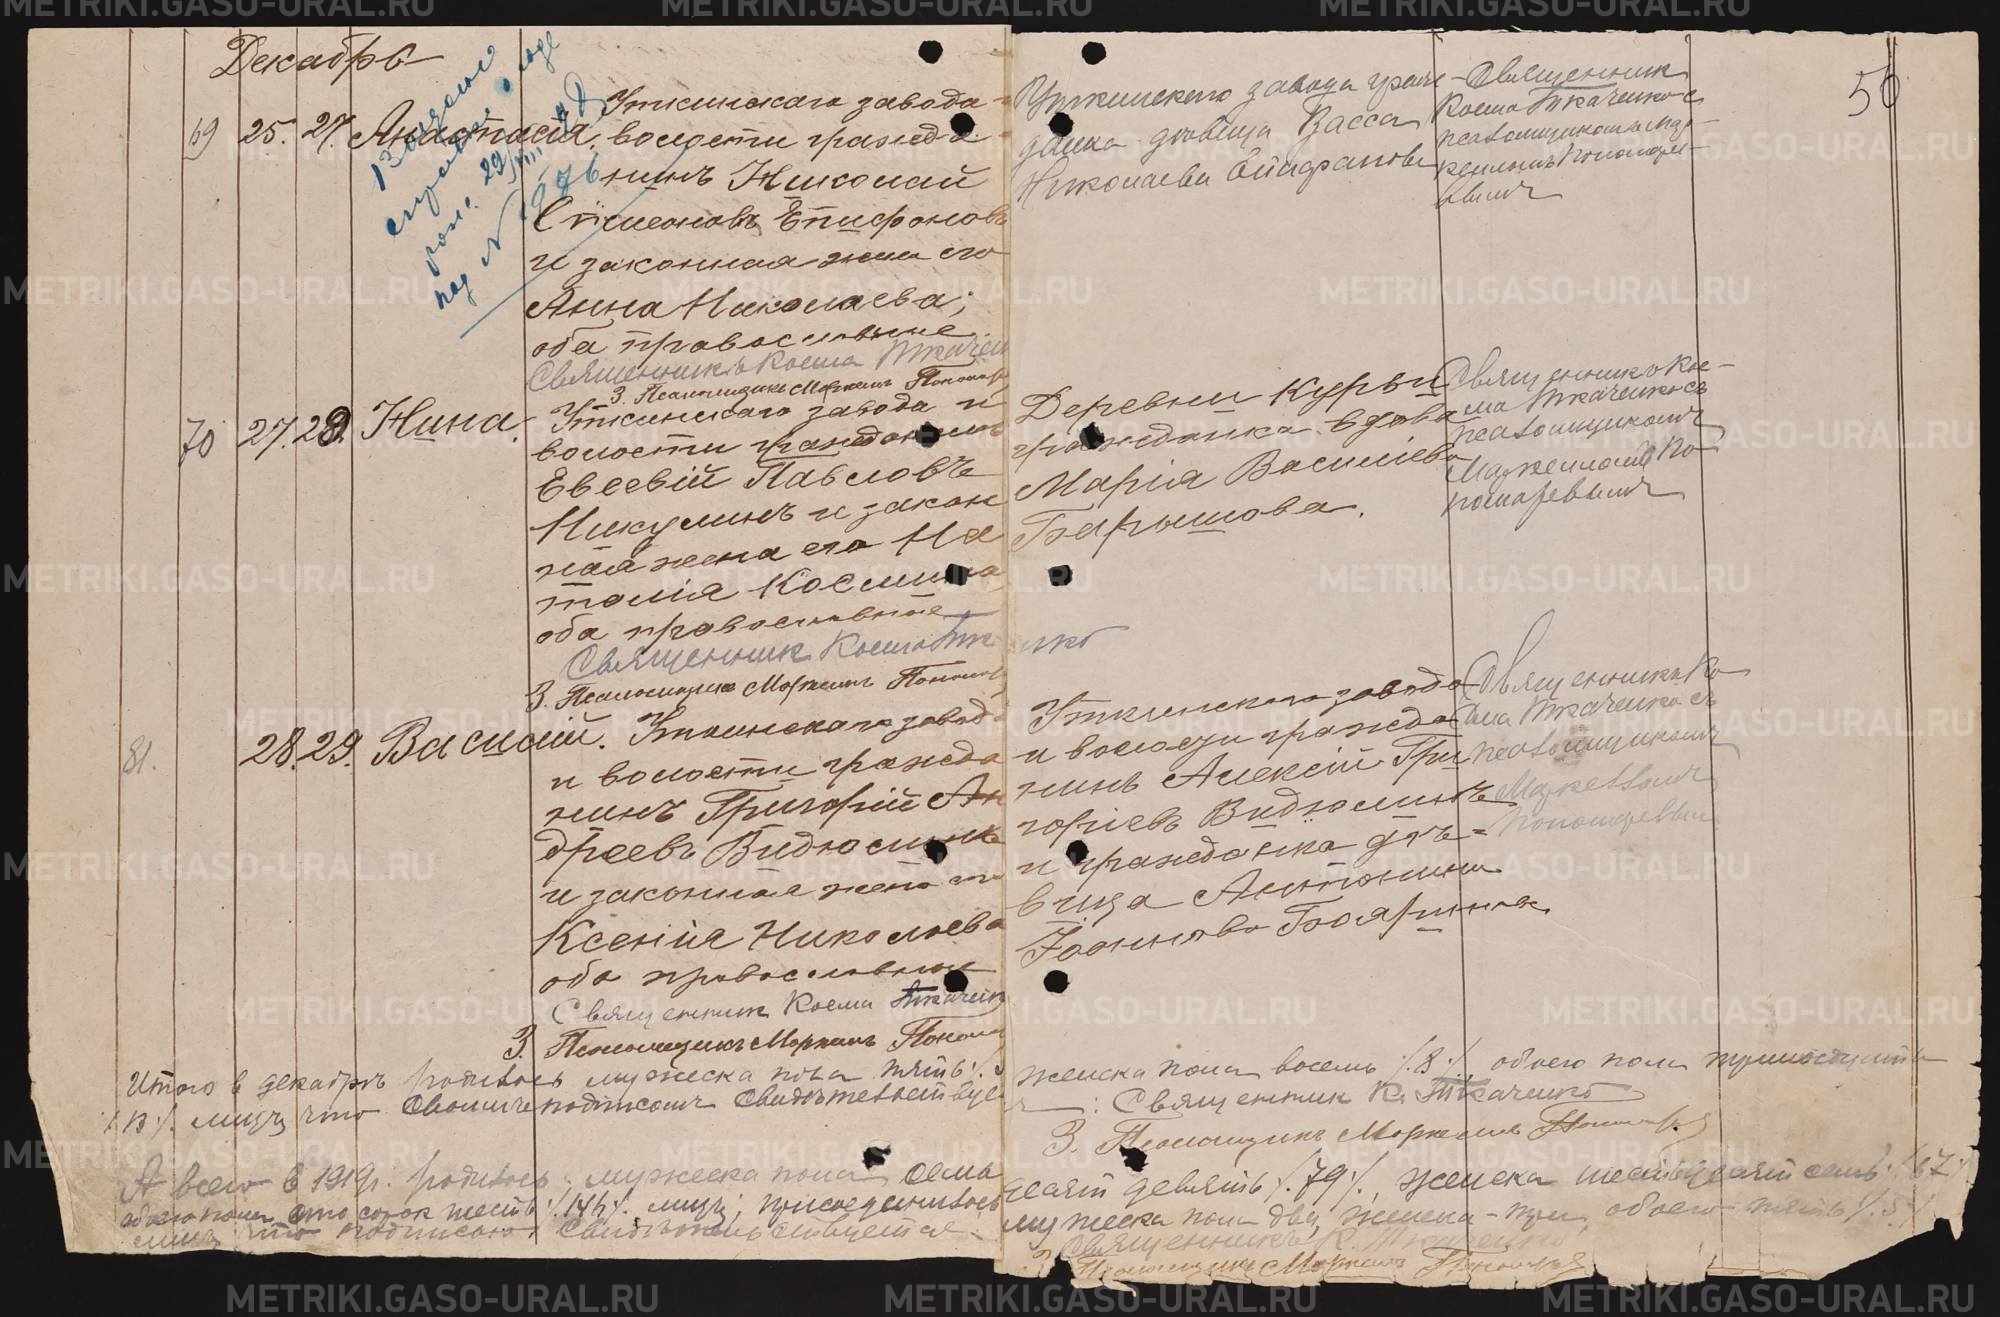 Декабрь
56
69 25. 27. Анастасія.
Уткинскаго завода
волости гражда
нинъ Николай
Симеоновъ Епифановъ
и законная жена его
Анна Николаева;
оба православные
Священникъ Косма Ткачен
З. Псаломщикъ Маркелъ Пономар
Уткинскаго завода граж-
данка дѣвица Васса
Николаева Епифанова
Священник
Косма Ткаченко с
псаломщикомъ Мар-
келомъ Пономаре-
вымъ
Выдано
29/VIII
под №
70 27. 28. Нина.
Уткинскаго завода и
волости гражданинъ
Евсевій Павловъ
Никулинъ и закон
ная жена его На
талія Космина
оба православные
Священник Косма Ткаченко
З. Псаломщикъ Маркелъ Пономар
Деревни Курьи
гражданка вдова
Марія Василіева
Барышова.
Священник Кос-
ма Ткаченко съ
псаломщикомъ
Маркеломъ По
номаревымъ
81. 28. 29. Василій.
Уткинскаго завода
и волости гражда
нинъ Григорій Ан
дреевъ Видюлинъ
и законная жена его
Ксенія Николаева
оба православные
Священник Косма Ткаченк
З. Псаломщикъ Маркелъ Понома
Уткинскаго завода
и волости гражда
нинъ Алексій Гри
горіевъ Видюлинъ
и гражданка дѣ=
вица Антонина
Іоаннова Бояршинова
Священникъ Ко
сма Ткаченко съ
псаломщикомъ
Маркеломъ
Пономаревым
Итого в декабрѣ родилось мужеска пола пять ./. 5 женска пола восемь ./. 8 ./. обоего пола тринадцать
./. 13 ./. лицъ что своимъ подписомъ свидѣтельствуе : Священник К. Ткаченко
З. Псаломщикъ Маркелъ Пономар
А всего в 1919 г. родилось: мужеска пола семь десят девять ./. 79 ./., женска шестьдесят семь ./. 67 ./.
обоего пола сто сорок шесть ./. 146 ./. лицъ; присоединилось мужеска пола два, женска - три, обоего пять ./. 5 ./.
лицъ, что подписью свидѣтельствуется. Священникъ К. Ткаченко
З. Псаломщикъ Маркелъ Пономар
METRIKI.GASO-URAL.RU